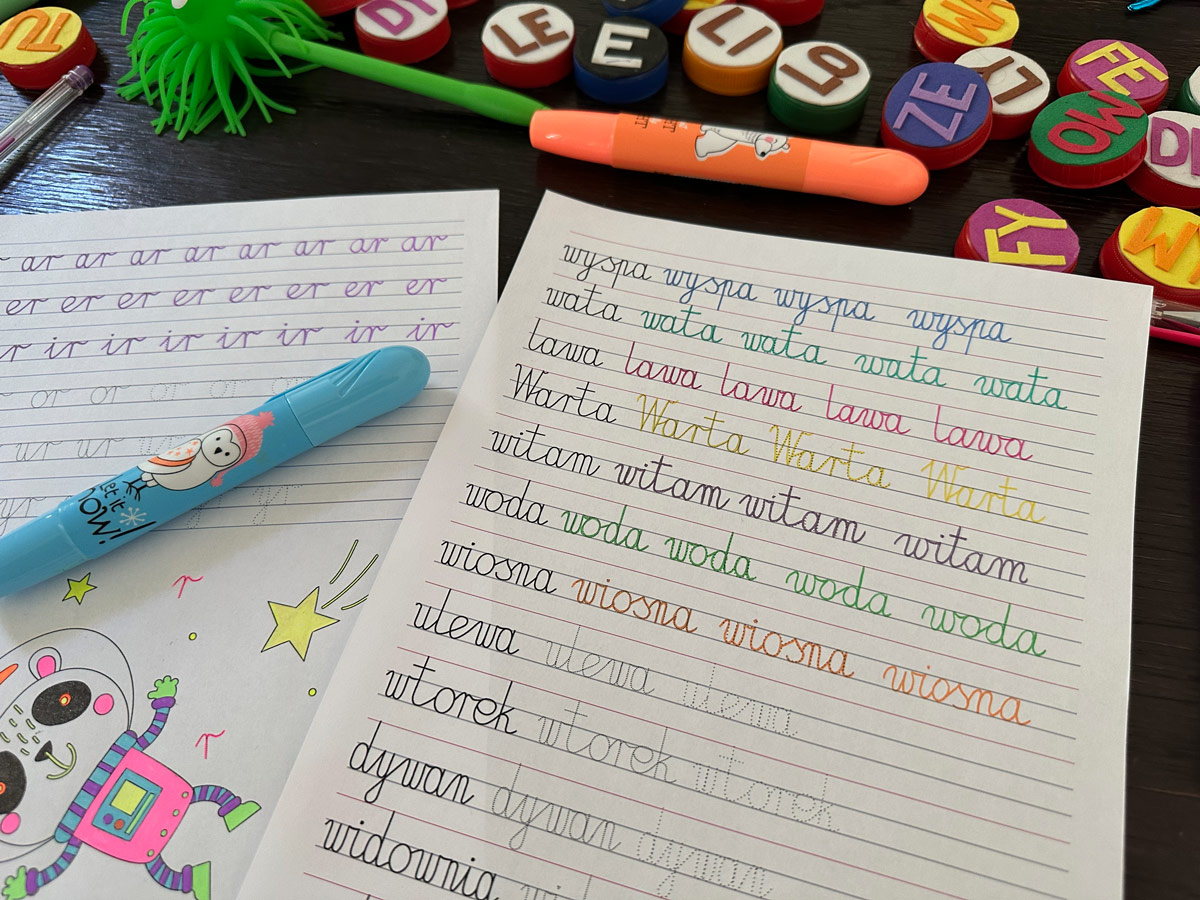 DI LE E LI LO WA
LY FE
ZE OW
FY W
ar ar ar ar ar ar ar ar
er er er er er er er er
ir ir ir ir ir ir ir
or or or or
ur ur
get it
now!
r
r
wyspa wyspa wyspa wyspa
wata wata wata wata wata
lawa lawa lawa lawa lawa
Warta Warta Warta Warta
witam witam witam witam
woda woda woda woda woda
wiosna wiosna wiosna wiosna
ulewa ulewa ulewa
wtorek wtorek wtorek
dywan dywan dywan
widownia